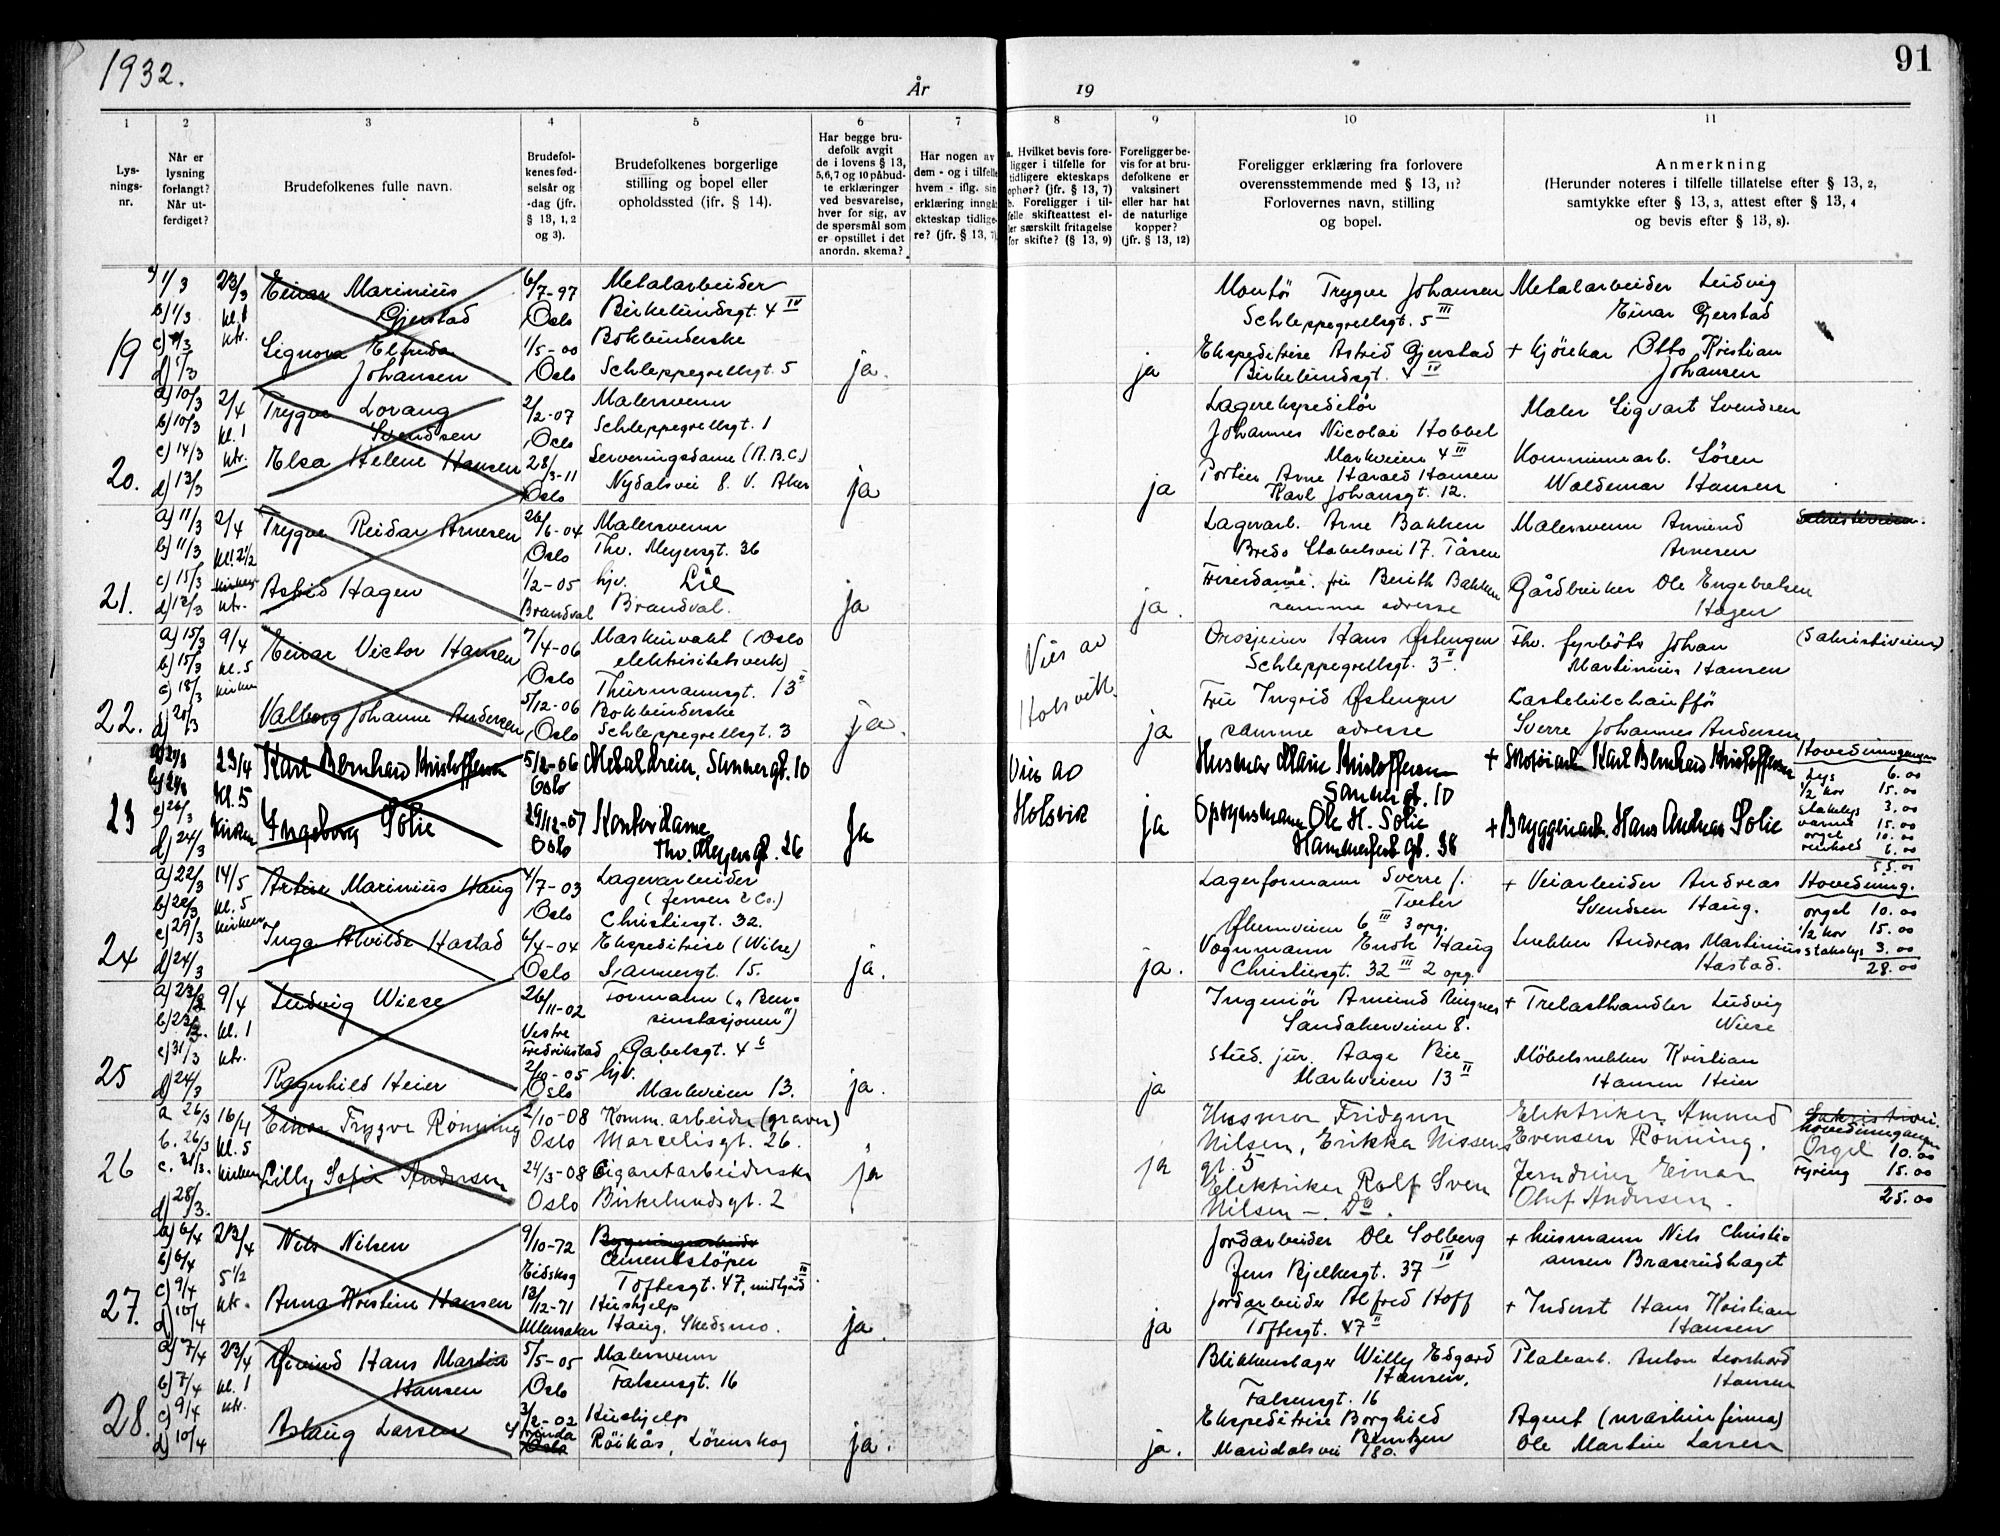 1932.
År
19
91
1
2
3
4
5
6
7
8
9
10
11
Lys-
nings-
nr.
Når er
lysning
forlangt?
Når ut-
ferdiget?
Brudefolkenes fulle navn.
Brudefol-
kenes fød-
selsår og
-dag (jfr.
§ 13, 1, 2
og 3).
Brudefolkenes borgerlige
stilling og bopel eller
opholdssted (jfr. § 14).
Har begge bru-
defolk avgit
de i lovens § 13,
5,6,7 og 10 påbud-
te erklæringer
ved besvarelse,
hver for sig, av
de spørsmål som
er opstillet i det
anordn. skema?
Har nogen av
dem - og i tilfelle
hvem - iflg. sin
erklæring inngått
ekteskap tidlige-
re? (jfr. § 13, 7)
a. Hvilket bevis fore-
ligger i tilfelle for
tidligere ekteskaps
ophør? (jfr. § 13, 7)
b. Foreligger i til-
felle skifteattest el-
ler særskilt fritagelse
for skifte? (§ 13, 9)
Foreligger be-
vis for at bru-
defolkene er
vaksinert
eller har hat
de naturlige
kopper?
(jfr. § 13, 12)
Foreligger erklæring fra forlovere
overensstemmende med § 13, 11?
Forlovernes navn, stilling
og bopel.
Anmerkning
(Herunder noteres i tilfelle tillatelse efter § 13, 2,
samtykke efter § 13, 3, attest efter § 13, 4
og bevis efter § 13, 8).
19
a) 1/3
b) 1/3
d) 1/3
23/3
kl. 1
ktr.
Einar Marinius
Gjerstad
Signora Elfrida
Johansen
6/7-97
Oslo
1/5-00
Oslo
Metalarbeider
Birkelundsgt. 4 IV
Bokbinderske
Schleppegrellsgt. 5
ja.
ja
Montør Trygve Johansen
Schleppegrellsgt. 5 III
Ekspeditrise Astrid Gjerstad
Birkelundsgt. 4 IV
Metalarbeider Ludvig
Einar Gjerstad
+ Kjørekar Otto Kristian
Johansen
20.
a) 10/3
b) 10/3
c) 14/3
d) 13/3
2/4
kl. 1
ktr.
Trygve Lorang
Svendsen
Elsa Helene Hansen
2/2-07
Oslo
28/3-11
Oslo
Malersvenn
Schleppegrellsgt. 1
Serveringsdame (A.B.C.)
Nydalsvei 8. V. Aker
ja
ja
Lagerekspeditør
Johannes Nicolai Hobbel
Markveien 4 III
Portier Arne Harald Hansen
Karl Johansgt. 12.
Maler Sigvart Svendsen
Kommunearb. Søren
Waldemar Hansen
21.
a) 11/3
b) 11/3
c) 15/3
d) 12/3
2/4
kl. 2 1/2
ktr.
Trygve Reidar Arnesen
Astrid Hagen
26/6-04
Oslo
1/2-05
Brandval
Malersvenn
Thv. Meyersgt. 36
hjv. Lie
Brandval.
ja
ja.
Lagerarb. Arne Bakken
Bredo Stabelsvei 17. Tåsen
Frisørdame, fru Berith Bakken
samme adresse
Malersvenn Amund
Arnesen
Gårdbruker Ole Engebretsen
Hagen
Sakristiveien.
22.
a) 15/3
b) 15/3
c) 18/3
d) 20/3
9/4
kl. 5
kirken
Einar Victor Hansen
Valborg Johanne Andersen
7/4-06
Oslo
5/12-06
Oslo
Maskinvakt (Oslo
elektrisitetsverk)
Thurmannsgt. 13 II
Bokbinderske
Schleppegrellsgt. 3
ja.
Vies av
Holsvik.
ja
Hans Østengen
Schleppegrellsgt. 3 II.
Fru Ingrid Østengen
samme adresse
Fhv. fyrbøter Johan
Martinius Hansen
Lastebilchauffør
Sverre Johannes Andersen
(Sakristiveien)
23
c) 26/3
d) 24/3
23/4
kl. 5
Kirken
Karl Bernhard Kristoffersen
Ingeborg Solie
5/12-06
Oslo
29/12-07
Oslo
Metaldreier, Sannergt. 10
Kontordame
Thv. Meyersgt. 26
Ja
Vies av
Holsvik
ja
Husmor Marie Kristoffersen
Sannergt. 10
Opsynsmann Ole H. Solie
Hammerfestgt. 38
+ Skotøiarb. Karl Bernhard Kristoffersen
+ Bryggeriarb. Hans Andreas Solie
Hovedinngangen
Lys 6.00
1/2 kor 15.00
Stakelys 3.00
varme 15.00
orgel 10.00
renhold 6.00
55.00
24
a) 22/3
b) 22/3
c) 29/3
d) 24/3
14/5
kl. 5
kirken
Artur Marinius Haug
Inga Alvilde Hastad
4/7-03
Oslo
6/4-04
Oslo
Lagerarbeider
(Jensen & Co.)
Christiesgt. 32.
Ekspeditrise (Wilse)
Sannergt. 15.
ja.
ja.
Lagerformann Sverre J.
Tveter
Økernveien 6 III 3 opg.
Vognmann Enok Haug
Christiesgt. 32 III 2 opg.
+ Veiarbeider Andreas
Svendsen Haug.
Snekker Andreas Martinius
Hastad.
Hovedinng.
orgel 10.00
1/2 kor 15.00
stakelys 3.00
28.00
25
a) 23/3
b) 23/3.
c) 31/3
d) 24/3
9/4
kl. 1
ktr.
Ludvig Wiese
Ragnhild Heier
26/11-02
Vestre
Fredrikstad
2/10-05
Oslo
Formann („Ben-
sinstasjonen")
Gabelsgt. 46
hjv.
Markveien 13.
ja.
ja
Ingeniør Amund Ringnes
Sandakerveien 8.
Stud. jur. Aage Bie
Markveien 13 II
+ Trelasthandler Ludvig
Wiese
Møbelsnekker Kristian
Hansen Heier
26
a 26/3
b. 26/3
c. 31/3.
d) 28/3.
16/4
kl. 5
kirken
Einar Trygve Rønning
Lilly Sofie Andersen
2/10-08
Oslo
24/3-08
Oslo
Komm. arbeider (graver)
Marcelisgt. 26.
Cigaretarbeiderske
Birkelundsgt. 2
ja
ja
Husmor Fridgunn
Nilsen, Erikka Nissens
gt. 5
Elektriker Rolf Sven
Nilsen —. Do.
Elektriker Amund
Evensen Rønning.
Jerndreier Einar
Oluf Andersen.
hovedinngangen
Orgel 10.00
15.00
25.00
27.
a) 6/4
b) 6/4
c) 9/4
d) 10/4
23/4
5 1/2
ktr.
Nils Nilsen
Anna Kristine Hansen
9/10-72
Eidskog
13/12-71
Ullensaker
Bygningsarbeider
Cementstøper
Toftesgt. 47, midtgård III
Hushjelp
Haug, Skedsmo.
ja.
ja
Jordarbeider Ole Solberg
Jens Bjelkesgt. 37 IV
Jordarbeider Alfred Hoff
Toftesgt. 47 II
+ husmann Nils Christi-
ansen Braserudhaget
+ Inderst Hans Kristian
Hansen
28.
a) 7/4
b) 7/4
c) 9/4
d) 10/4
23/4
kl. 1
ktr.
Øivind Hans Martin
Hansen
Aslaug Larsen
5/5-05
Oslo
3/2-02
Strinda
Oslo
Malersvenn
Falsensgt. 16
Hushjelp
Røikås, Lørenskog
ja.
ja.
Blikkenslager Willy Edgard
Hansen,
Falsensgt. 16
Ekspeditrise Borghild
Berntzen
Maridalsvei 180.
Platearb. Anton Leonhard
Hansen
Agent (maskinfirma)
Ole Martin Larsen